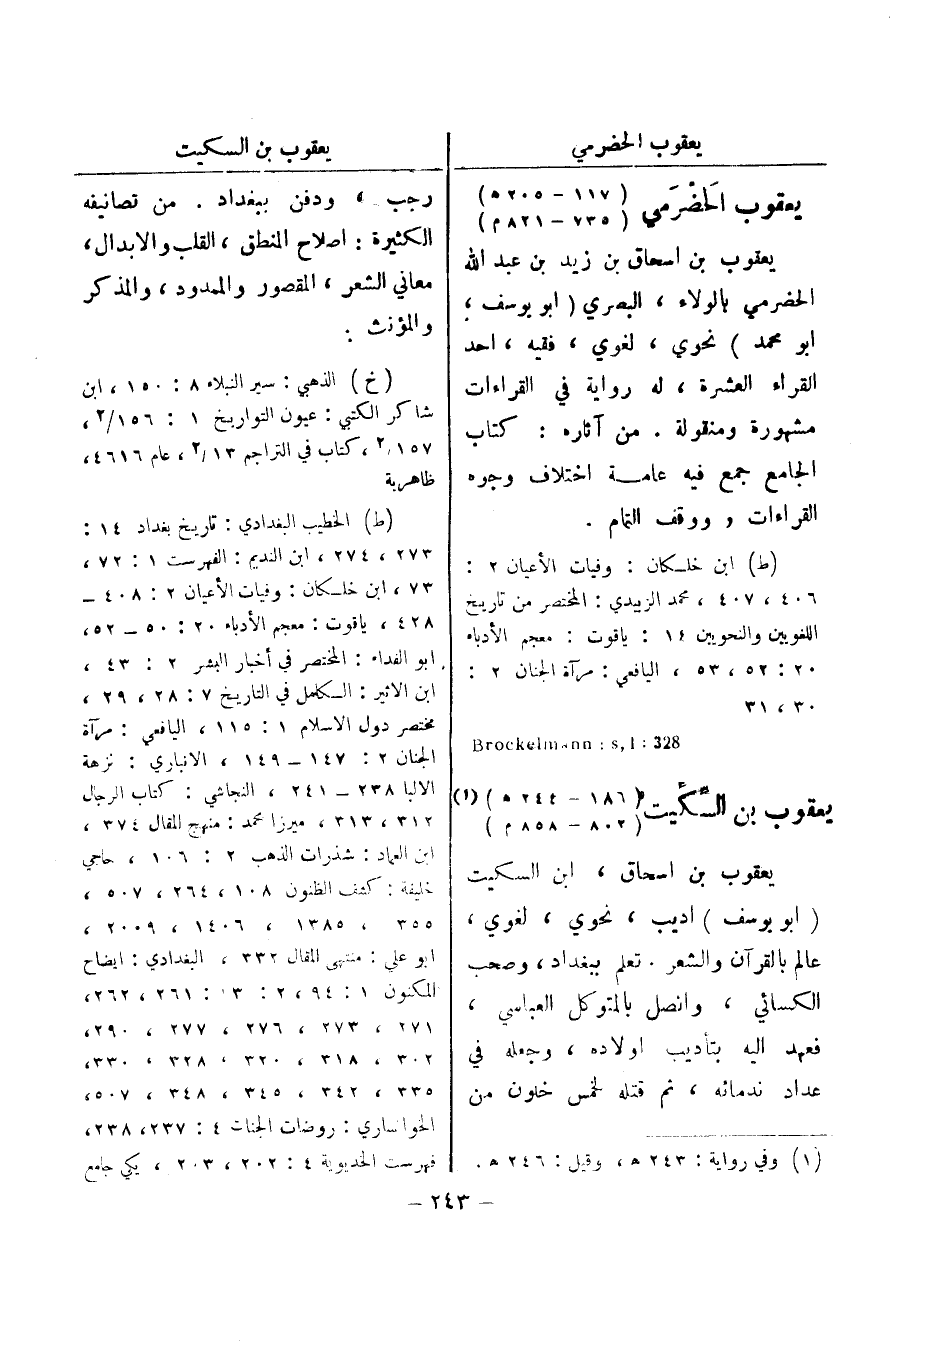 يعقوب الحضرمي
يعقوب الحَضْرَمي (١١٧ – ٢٠٥ ه)
(٧٣٥ – ٨٢١ م)
يعقوب بن اسحاق بن زيد بن عبد الله
الحضرمي بالولاء ، البصري ( ابو يوسف ،
ابو محمد ) نحوي ، لغوي ، فقيه ، احد
القراء العشرة ، له رواية في القراءات
مشهورة ومنقولة . من آثاره : كتاب
الجامع جمع فيه عامة اختلاف وجوه
القراءات و ووقف التمام .
(ط) ابن خلكان : وفيات الأعيان ٢ :
٤٠٦ ، ٤٠٧ ، محمد الزبيدي : المختصر من تاريخ
اللغويين والنحويين ١٤ : ياقوت : معجم الأدباء
٢٠ : ٥٢ ، ٥٣ ، اليافعي : مرآة الجنان ٢ :
٣٠ ، ٣١
Brockelmann : s, I : 328
يعقوب بن السِّكِّيت (١٨٦ – ٢٤٤ ه) (١)
(٨٠٢ – ٨٥٨ م)
يعقوب بن اسحاق ، ابن السكيت
( ابو يوسف ) أديب ، نحوي ، لغوي ،
عالم بالقرآن والشعر . تعلم ببغداد ، وصحب
الكسائي ، واتصل بالمتوكل العباسي ،
فعهد اليه بتأديب اولاده ، وجعله في
عداد ندمائه ، ثم قتله لخمس خلون من
(١) وفي رواية : ٢٤٣ ه ، وقيل : ٢٤٦ ه .
يعقوب بن السكيت
رجب ، ودفن ببغداد . من تصانيفه
الكثيرة : اصلاح المنطق ، القلب والابدال ،
معاني الشعر ، المقصور والممدود ، والمذكر
والمؤنث .
(خ) الذهبي : سير النبلاء ٨ : ١٥٠ ، ابن
شاكر الكتبي : عيون التواريخ ١ : ١٥٦/٢ ،
١٥٧/٢ ، كتاب في التراجم ١٣/٢ ، عام ٤٦١٦ ،
ظاهرية
(ط) الخطيب البغدادي : تاريخ بغداد ١٤ :
٢٧٣ ، ٢٧٤ ، ابن النديم : الفهرست ١ : ٧٢ ،
٧٣ ، ابن خلكان : وفيات الأعيان ٢ : ٤٠٨ –
٤٢٨ ، ياقوت : معجم الأدباء ٢٠ : ٥٠ – ٥٢ ،
ابو الفداء : المختصر في أخبار البشر ٢ : ٤٣ ،
ابن الاثير : الكامل في التاريخ ٧ : ٢٨ ، ٢٩ ،
مختصر دول الاسلام ١ : ١١٥ ، اليافعي : مرآة
الجنان ٢ : ١٤٧ – ١٤٩ ، الانباري : نزهة
الالبا ٢٣٨ – ٢٤١ ، النجاشي : كتاب الرجال
٣١٢ ، ٣١٣ ، ميرزا محمد : منهج المقال ٣٧٤ ،
ابن العماد : شذرات الذهب ٢ : ١٠٦ ، حاجي
خليفة : كشف الظنون ١٠٨ ، ٢٦٤ ، ٥٠٧ ،
٣٥٥ ، ١٣٨٥ ، ١٤٠٦ ، ٢٠٠٩ ،
ابو علي : منتهى المقال ٣٣٢ ، البغدادي : ايضاح
المكنون ١ : ٩٤ ، ٢ : ٣ : ٢٦١ ، ٢٦٢ ،
٢٧١ ، ٢٧٣ ، ٢٧٦ ، ٢٧٧ ، ٢٩٠ ،
٣٠٢ ، ٣١٨ ، ٣٢٠ ، ٣٢٨ ، ٣٣٠ ،
٣٣٥ ، ٣٤٢ ، ٣٤٥ ، ٣٤٨ ، ٥٠٧ ،
الخوانساري : روضات الجنات ٤ : ٢٣٧ ، ٢٣٨ ،
فهرست الخديوية ٤ : ٢٠٢ ، ٢٠٣ ، يكي جامع
– ٢٤٣ –